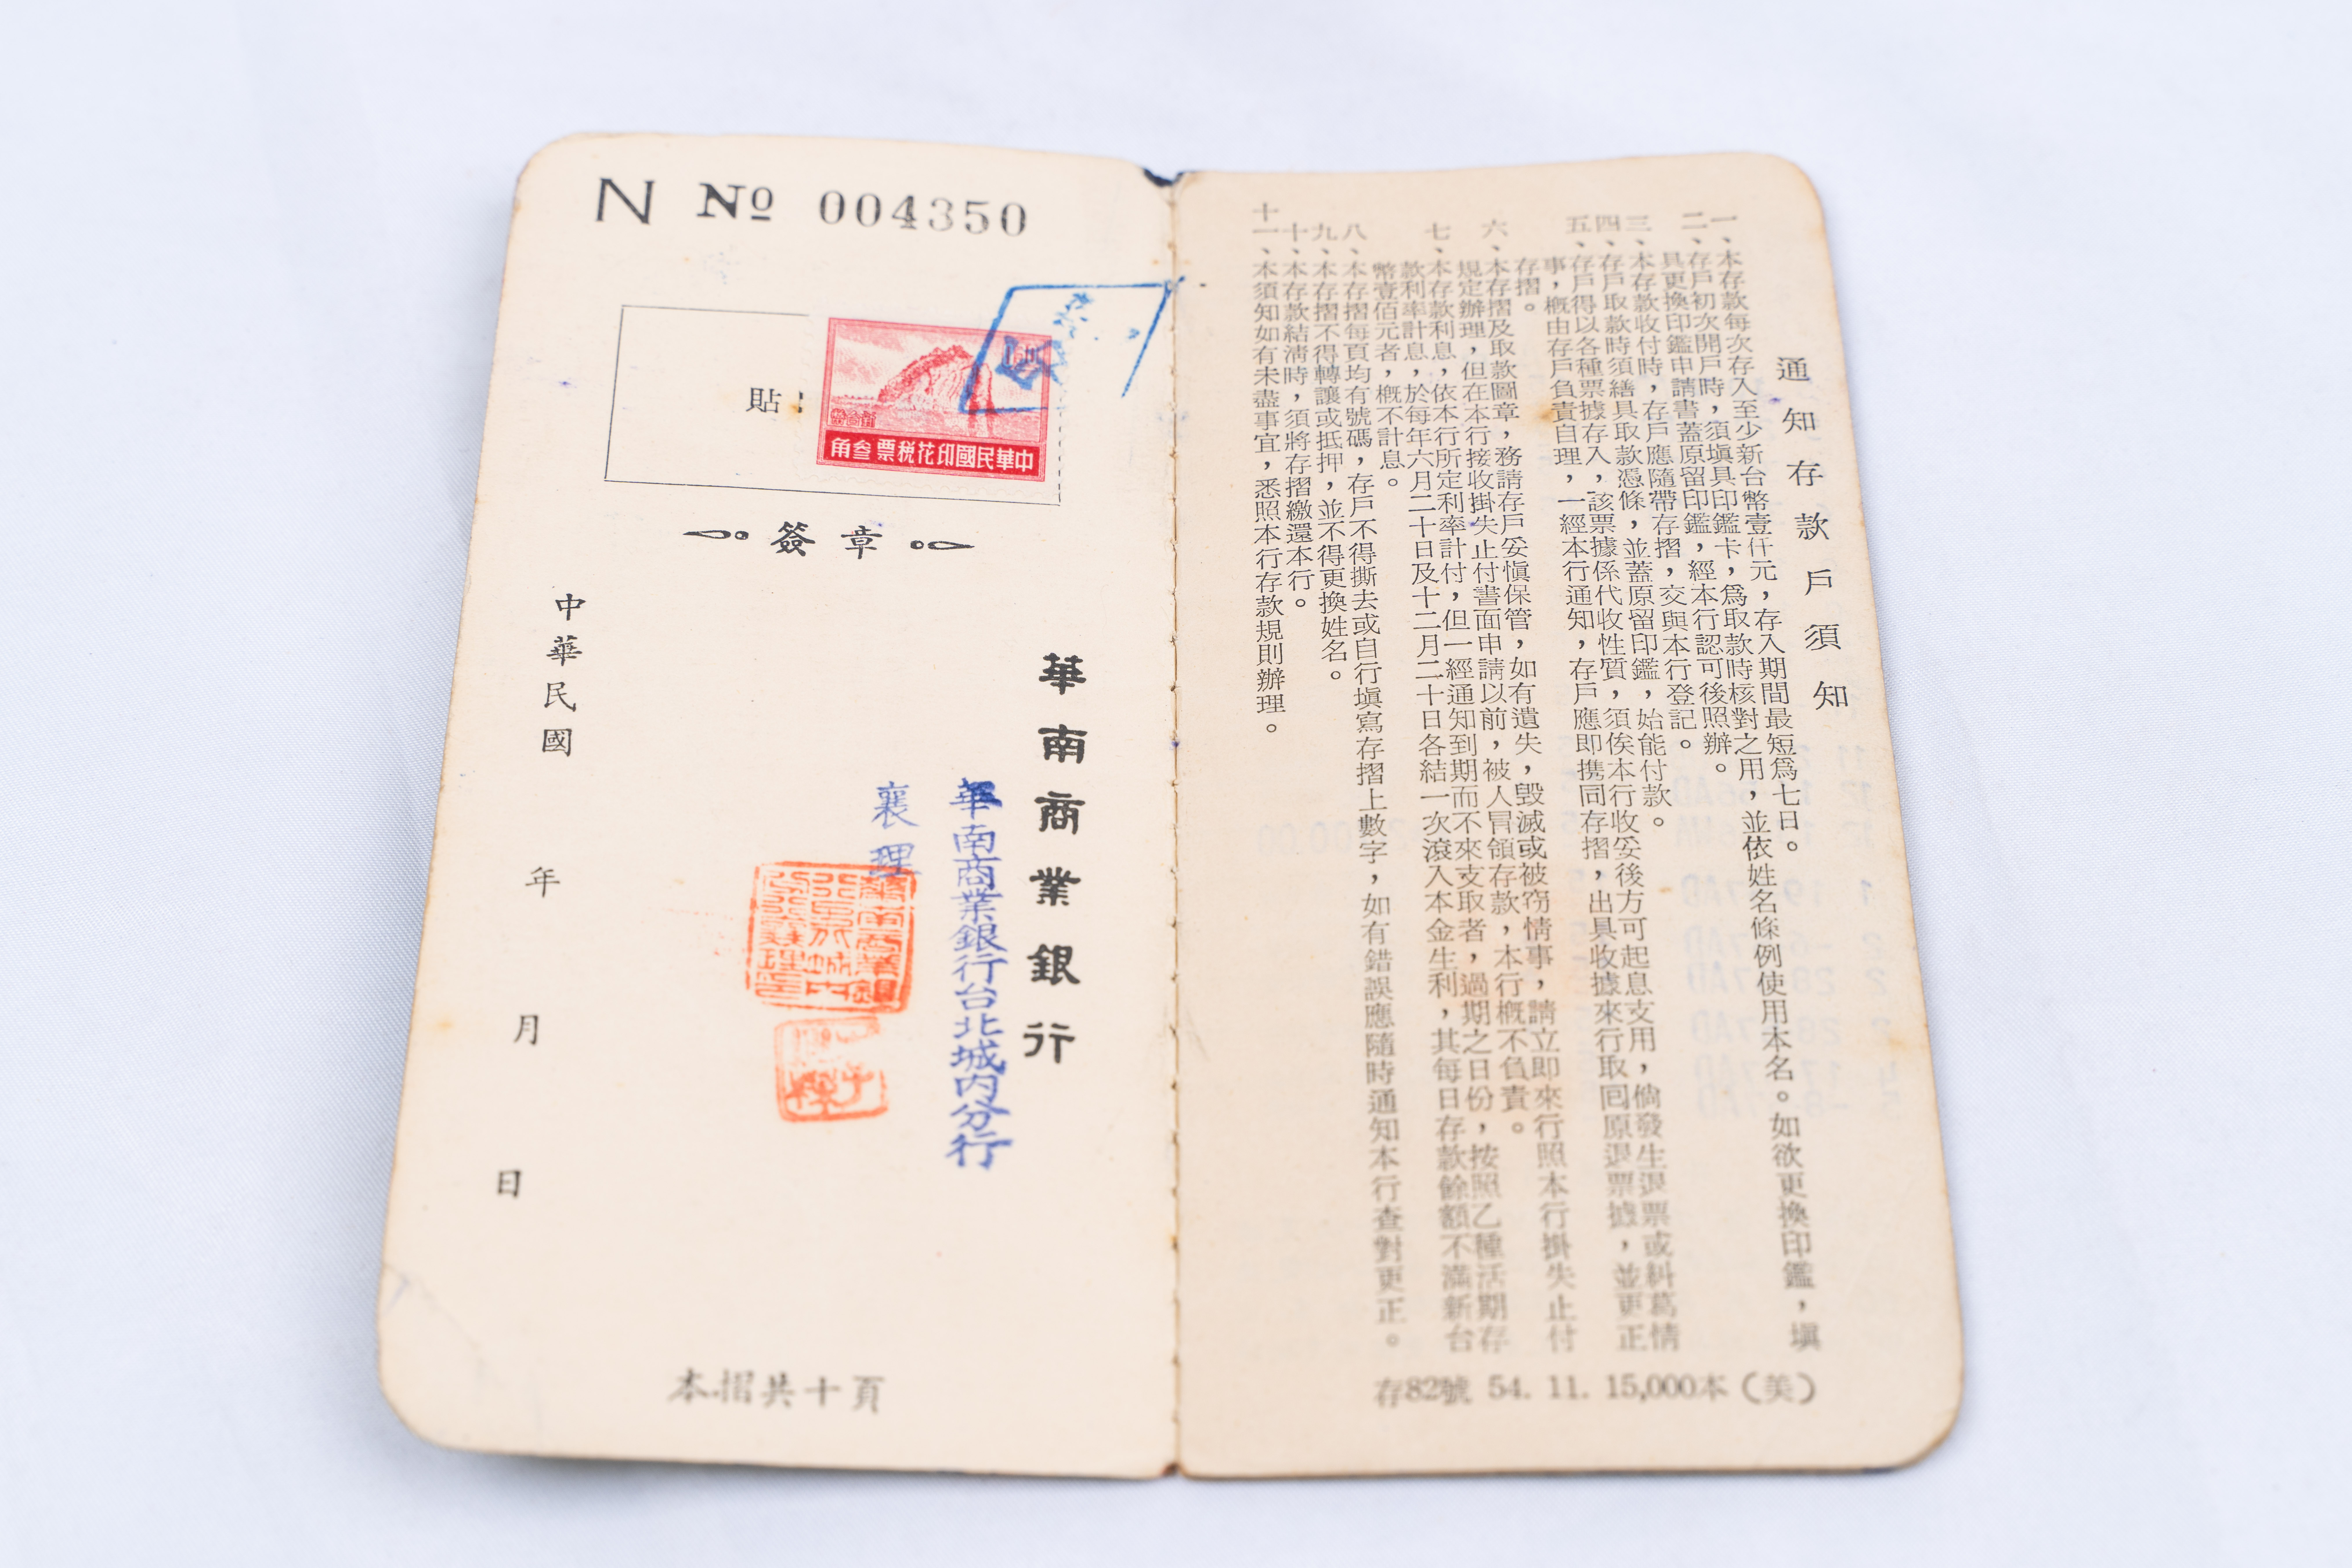 通知存款戶須知
一、本存款每次存入至少新台幣壹仟元，存入期間最短爲七日。
二、存戶初次開戶時，須塡具印鑑卡，爲取款時核對之用，並依姓名條例使用本名。如欲更換印鑑，塡
具更換印鑑申請書蓋原留印鑑，經本行認可後照辦。
三、本存款收付時，存戶應隨帶存摺，交與本行登記。
四、存戶取款時須繕具取款憑條，並蓋原留印鑑，始能付款。
五、存戶得以各種票據存入，該票據係代收性質，須俟本行收妥後方可起息支用，倘發生退票或糾葛情
事，概由存戶負責自理，一經本行通知，存戶應即携同存摺，出具收據來行取囘原退票據，並更正
存摺。
六、本存摺及取款圖章，務請存戶妥愼保管，如有遺失，毀滅或被窃情事，請立即來行照本行掛失止付
規定辦理，但在本行接收掛失止付書面申請以前，被人冐領存款，本行概不負責。
七、本存款利息，依本行所定利率計付，但一經通知到期而不來支取者，過期之日份，按照乙種活期存
款利率計息，於每年六月二十日及十二月二十日各結一次滾入本金生利，其每日存款餘額不滿新台
幣壹佰元者，概不計息。
八、本存摺每頁均有號碼，存戶不得撕去或自行塡寫存摺上數字，如有錯誤應隨時通知本行查對更正。
九、本存摺不得轉讓或抵押，並不得更換姓名。
十、本存款結淸時，須將存摺繳還本行。
十一、本須知如有未盡事宜，悉照本行存款規則辦理。
存82號 54. 11. 15,000本（美）
N № 004350
貼
中華民國印花稅票 叁角
簽章
華南商業銀行
華南商業銀行台北城內分行
襄理
中華民國 年 月 日
本摺共十頁